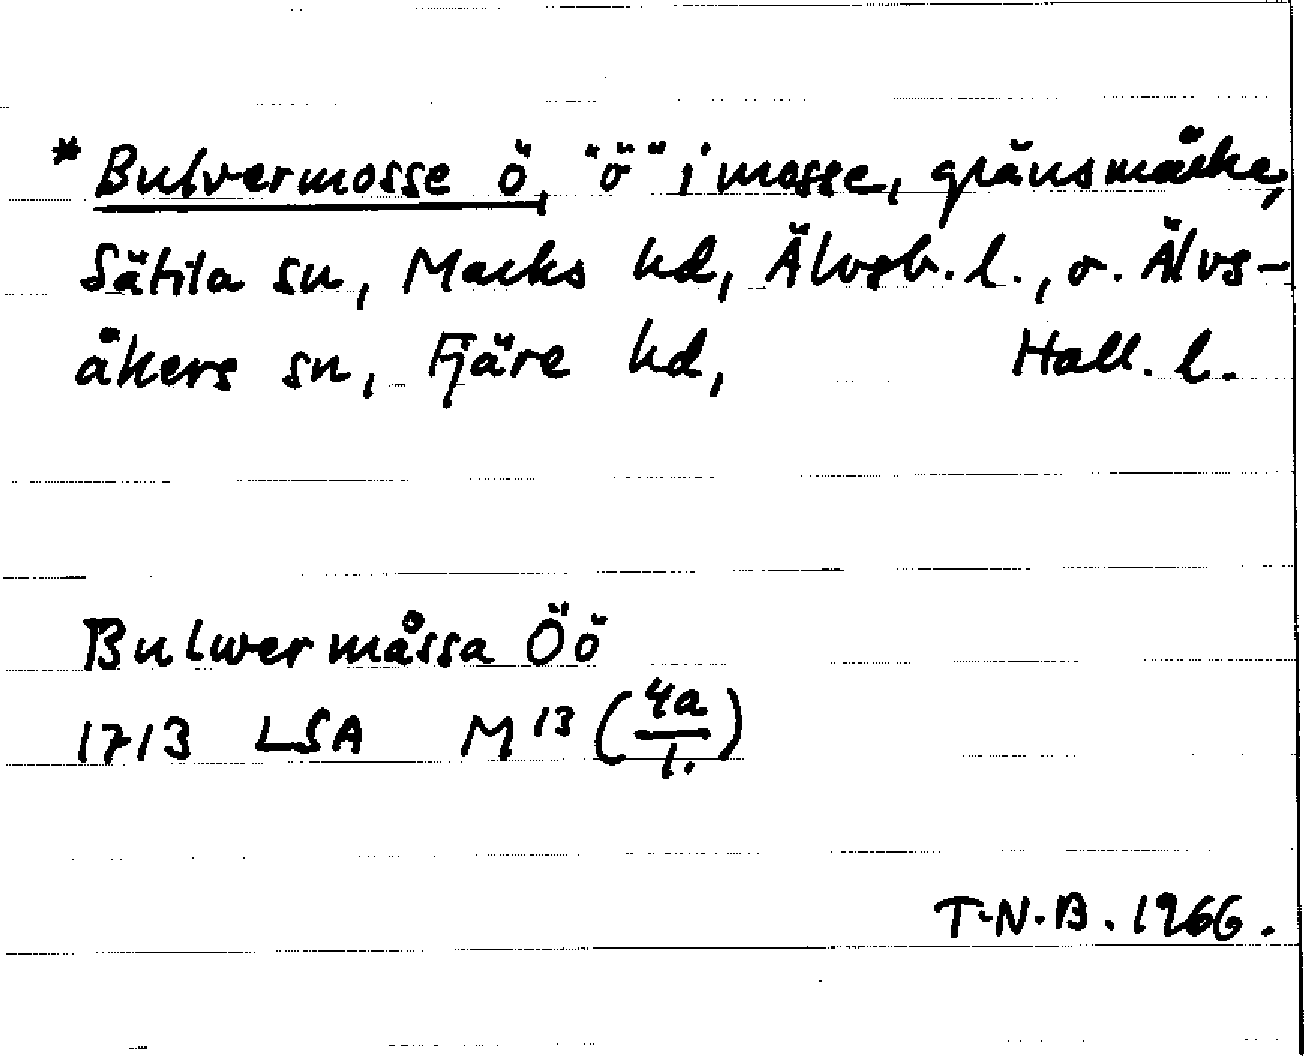 * Bulvermosse ö, "ö" i mosse, gränsmärke,
Sätila sn, Marks hd, Älvsb. l., o. Älvs-
åkers sn, Fjäre hd, Hall. l.
Bulwer måssa Öö
1713 LSA M 13 (4a/1.)
T.N.B. 1966.